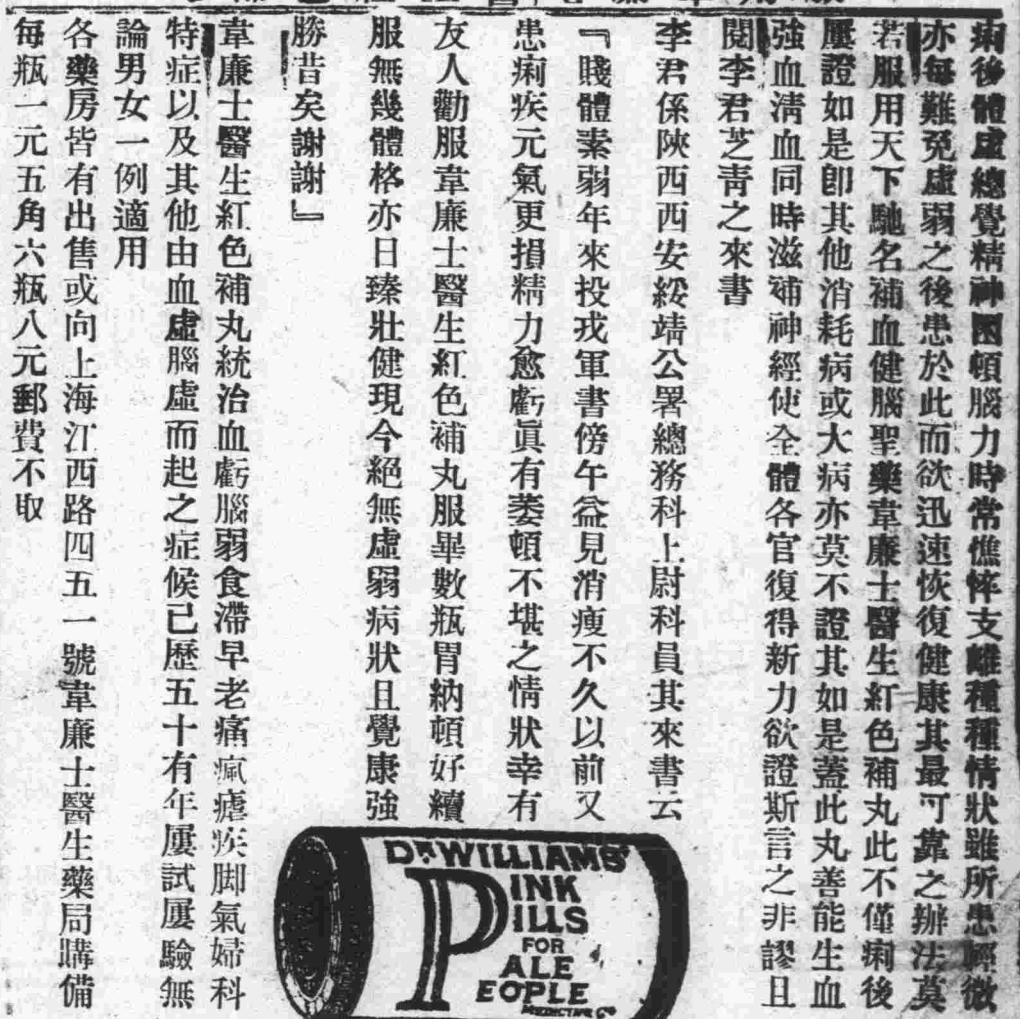 痢後體虛總覺精神困頓腦力時常憔悴支離種種情狀雖所患輕微
亦每難免虛弱之後患於此而欲迅速恢復健康其最可靠之辦法莫
若服用天下馳名補血健腦聖藥韋廉士醫生紅色補丸此不僅痢後
屢證如是卽其他消耗病或大病亦莫不證其如是蓋此丸善能生血
強血淸血同時滋補神經使全體各官復得新力欲證斯言之非謬且
閱李君芝靑之來書
李君係陝西西安綏靖公署總務科上尉科員其來書云
『賤體素弱年來投戎軍書傍午益見消瘦不久以前又
患痢疾元氣更損精力愈虧眞有萎頓不堪之情狀幸有
友人勸服韋廉士醫生紅色補丸服畢數瓶胃納頓好續
服無幾體格亦日臻壯健現今絕無虛弱病狀且覺康強
勝昔矣謝謝』
韋廉士醫生紅色補丸統治血虧腦弱食滯早老痛瘋瘧疾脚氣婦科
特症以及其他由血虛腦虛而起之症候已歷五十有年屢試屢驗無
論男女一例適用
各藥房皆有出售或向上海江西路四五一號韋廉士醫生藥局購備
每瓶一元五角六瓶八元郵費不取
DR. WILLIAMS'
PINK
PILLS
FOR
PALE
PEOPLE
MEDICINE CO